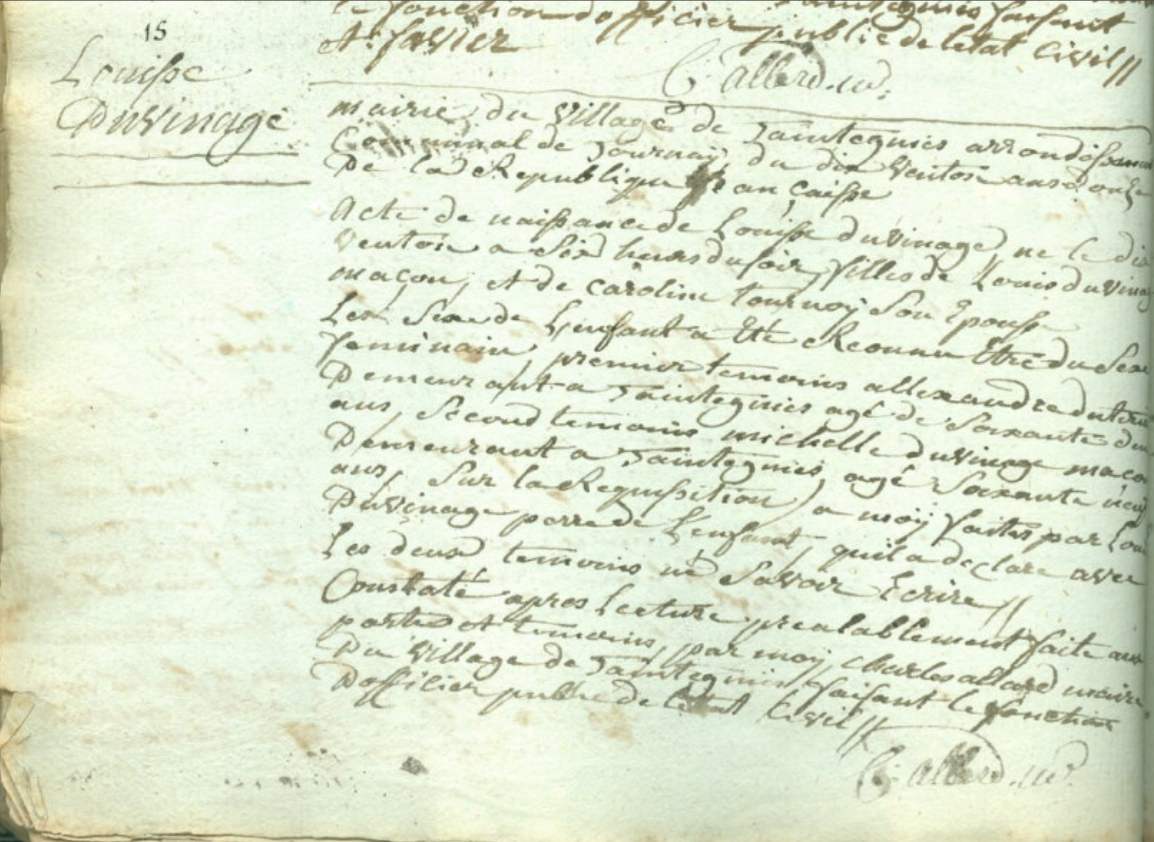 le fonction dofficier public de letat Civil //
et. favier
C: allard. m.
15
Louisse
Duvinage
mairie, du Village de Taintegnies arrondissem
Communal de Tournay du dix Ventose ans douze
De la Republique françaisse
Acte de naissance de Louisse duvinage, ne le dix
Ventose a Six heures du soir, filles de Louis duvinag
maçon, et de caroline tournoy Son Epousse
Les Sexe de Lenfant a Eté Reconnu Etre du Sexe
feminain, premier temoins allexandre
Demeurant a Taintegnies agé de Soixante
ans, Second temoins michelle duvinage maco
Demeurant a Taintegnies, agé Soixante neuf
ans, Sur la Requisition a moÿ faites par Loui
Duvinage perre de Lenfant, quil a declare avec
Les deux temoins ne Savoir Ecrire //
Constaté apres Lecture prealablement faite aux
parties et temoins, par moÿ, charles allard maire
Du Village de Taintegnies faisant le fonction
Dofficier public de letat Civil //
C: allard. m.